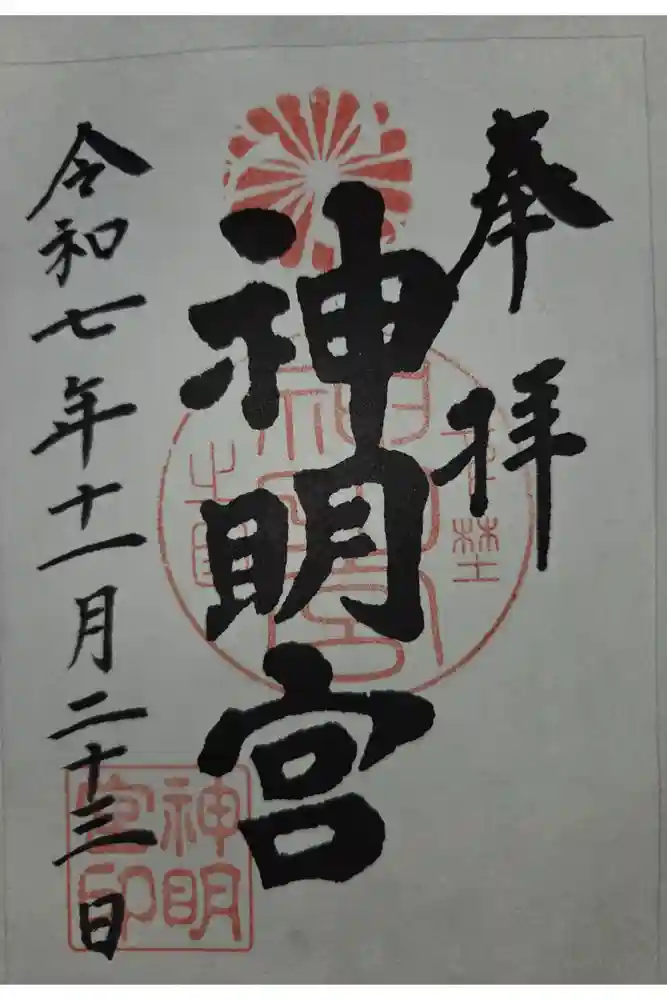 奉拝
神明宮
令和七年十一月二十三日
神明
宮印